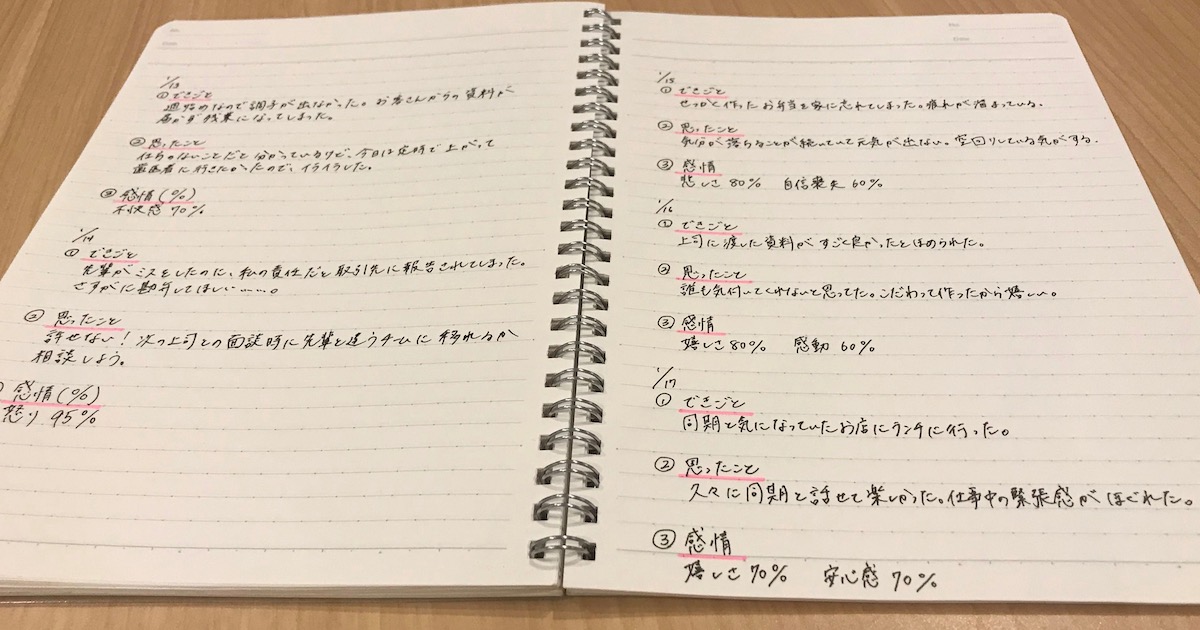 1/13
① できごと
週始めなので調子が出なかった。お客さんからの資料が
届かず残業になってしまった。
② 思ったこと
仕方ないことだと分かっているけど、今日は定時で上がって
歯医者に行きたかったので、イライラした。
③ 感情(%)
不快感 70%
1/14
① できごと
先輩がミスをしたのに、私の責任だと取引先に報告されてしまった。
さすがに勘弁してほしい……。
② 思ったこと
許せない！次の上司との面談時に先輩と違うチームに移れるか
相談しよう。
感情(%)
怒り 95%
1/15
① できごと
せっかく作ったお弁当を家に忘れてしまった。疲れが溜まっている。
② 思ったこと
気分が落ちることが続いていて元気が出ない。空回りしている気がする。
③ 感情
悲しさ 80% 自信喪失 60%
1/16
① できごと
上司に渡した資料がすごく良かったとほめられた。
② 思ったこと
誰も気付いてくれないと思ってた。こだわって作ったから嬉しい。
③ 感情
嬉しさ 80% 感動 60%
1/17
① できごと
同期と気になっていたお店にランチに行った。
② 思ったこと
久々に同期と話せて楽しかった。仕事中の緊張感がほぐれた。
③ 感情
嬉しさ 70% 安心感 70%